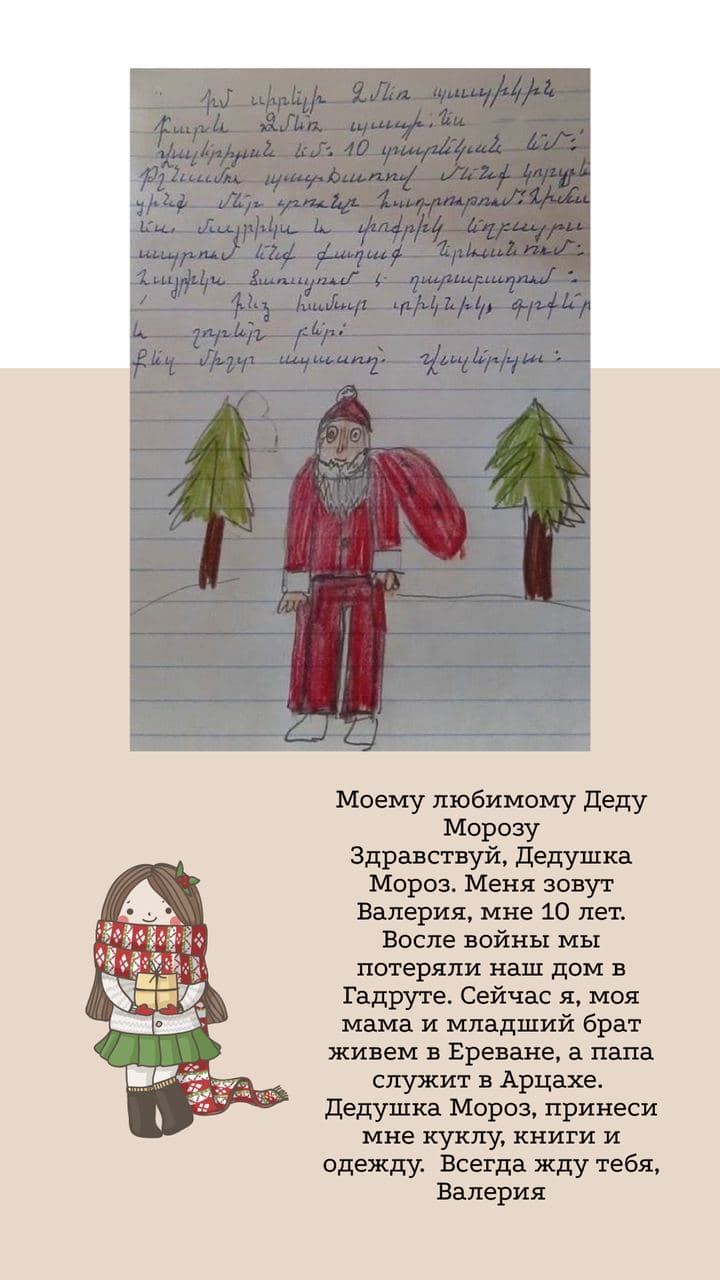 Իմ սիրելի Ձմեռ պապիկին
Բարև Ձմեռ պապի: Ես
Վալերիյան եմ: 10 տարեկան եմ:
պատճառով մենք
մեր տունը
Ես, մայրիկս և փոքրիկ եղբայրս
ապրում ենք քաղաք Երևանում:
Հայրիկս ծառայում է ղարաբաղում:
Ինձ համար տիկնիկ, գրքեր
և շորեր բեր:
Քեզ միշտ սպասող՝ Վալերիյա:
Моему любимому Деду
Морозу
Здравствуй, Дедушка
Мороз. Меня зовут
Валерия, мне 10 лет.
Восле войны мы
потеряли наш дом в
Гадруте. Сейчас я, моя
мама и младший брат
живем в Ереване, а папа
служит в Арцахе.
Дедушка Мороз, принеси
мне куклу, книги и
одежду. Всегда жду тебя,
Валерия